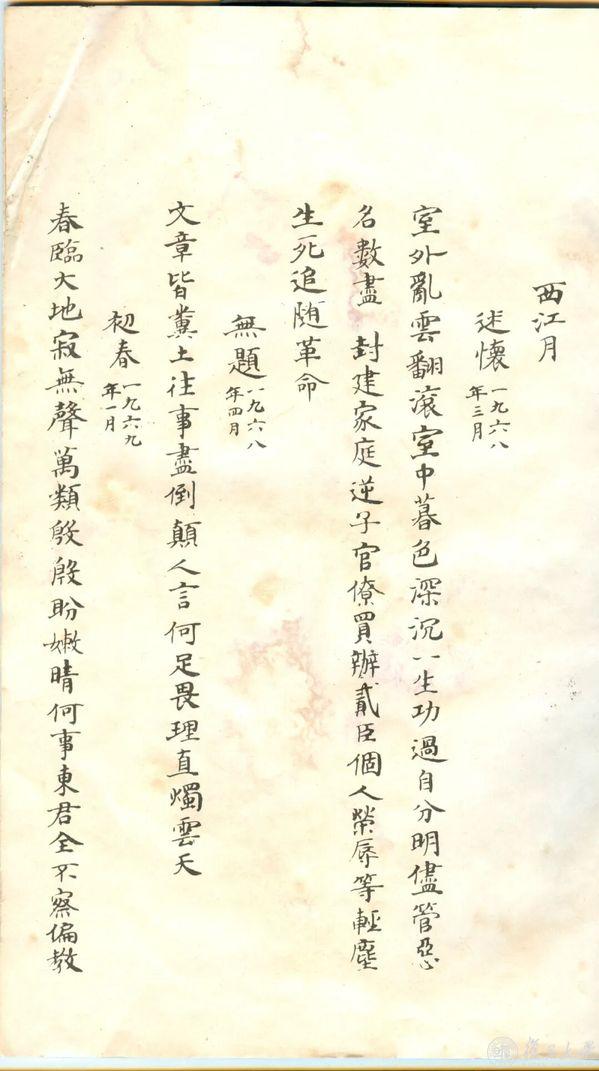 西江月
述懷 一九六八年三月
室外亂雲翻滾室中暮色深沉一生功過自分明儘管惡
名數盡　封建家庭逆子官僚買辦貳臣個人榮辱等輕塵
生死追随革命
無題 一九六八年四月
文章皆糞土往事盡倒顛人言何足畏理直燭雲天
初春 一九六九年一月
春臨大地寂無聲萬類殷殷盼嫩晴何事東君全不察偏教
復旦大學